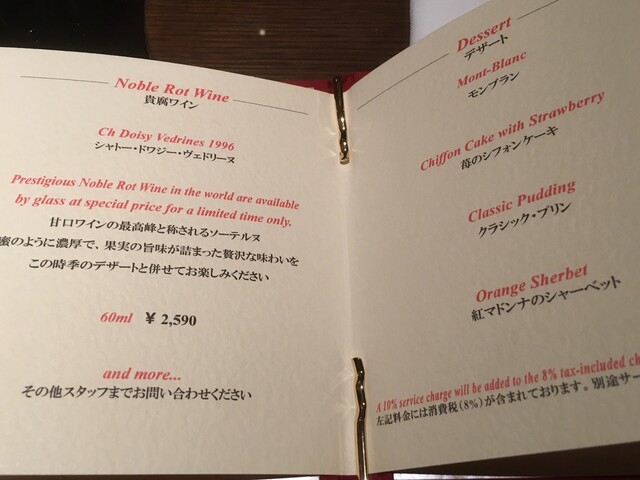 Noble Rot Wine
貴腐ワイン
Ch Doisy Vedrines 1996
シャトー・ドワジー・ヴェドリーヌ
Prestigious Noble Rot Wine in the world are available
by glass at special price for a limited time only.
甘口ワインの最高峰と称されるソーテルヌ
蜜のように濃厚で、果実の旨味が詰まった贅沢な味わいを
この時季のデザートと併せてお楽しみください
60ml ¥ 2,590
and more...
その他スタッフまでお問い合わせください
Dessert
デザート
Mont-Blanc
モンブラン
Chiffon Cake with Strawberry
苺のシフォンケーキ
Classic Pudding
クラシック・プリン
Orange Sherbet
紅マドンナのシャーベット
A 10% service charge will be added to the 8% tax-included
左記料金には消費税(8%)が含まれております。別途サー